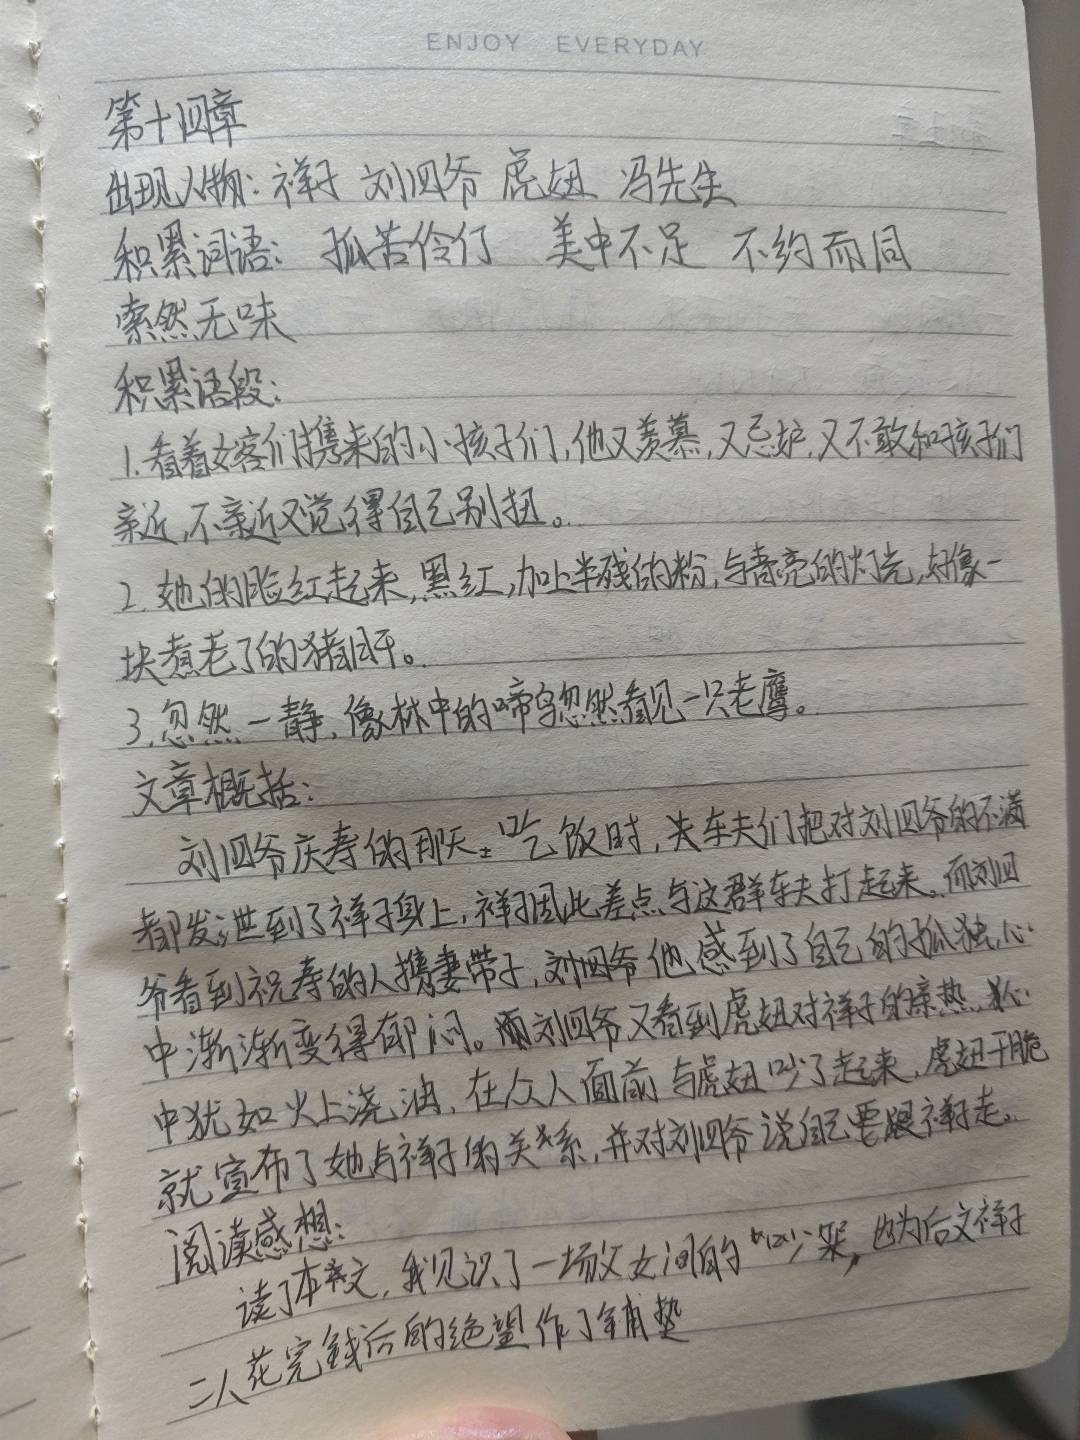 ENJOY EVERYDAY
第十四章
出现人物：祥子 刘四爷 虎妞 冯先生
积累词语： 孤苦伶仃 美中不足 不约而同
索然无味
积累语段：
1.看着女客们携来的小孩子们，他又羡慕，又忌妒，又不敢和孩子们
亲近，不亲近又觉得自己别扭。
2.她的脸红起来，黑红，加上半残的粉，与青亮的灯光，好像一
块煮老了的猪肝。
3.忽然一静，像林中的啼鸟忽然看见一只老鹰。
文章概括：
刘四爷庆寿的那天，吃饭时，失车夫们把对刘四爷的不满
都发泄到了祥子身上，祥子因此差点与这群车夫打起来。而刘四
爷看到祝寿的人携妻带子，刘四爷他感到了自己的孤独，心
中渐渐变得郁闷。而刘四爷又看到虎妞对祥子的亲热，心
中犹如火上浇油，在众人面前与虎妞吵了起来，虎妞干脆
就宣布了她与祥子的关系，并对刘四爷说自己要跟祥子走。
阅读感想：
读了本文，我见识了一场父女间的“吵架，也为后文祥子
二人花完钱后的绝望作了铺垫